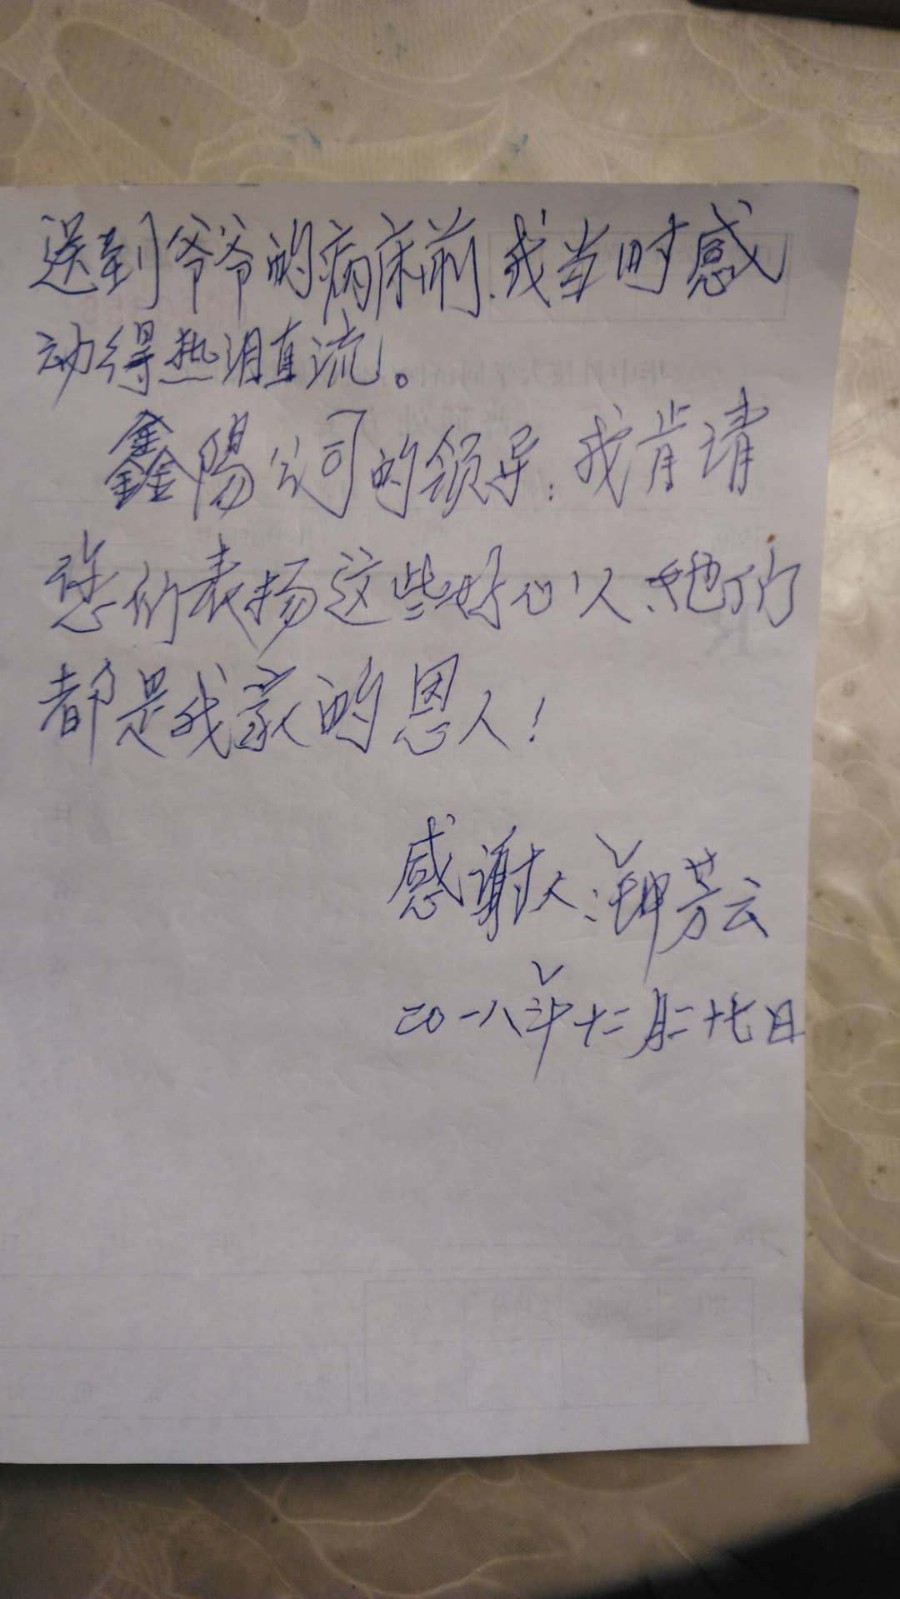 送到爷爷的病床前.我当时感
动得热泪直流。
鑫陽公司的领导:我肯请
您们表扬这些好心人、她们
都是我家的恩人!
感谢人:芳云
二〇一八年十二月二十七日